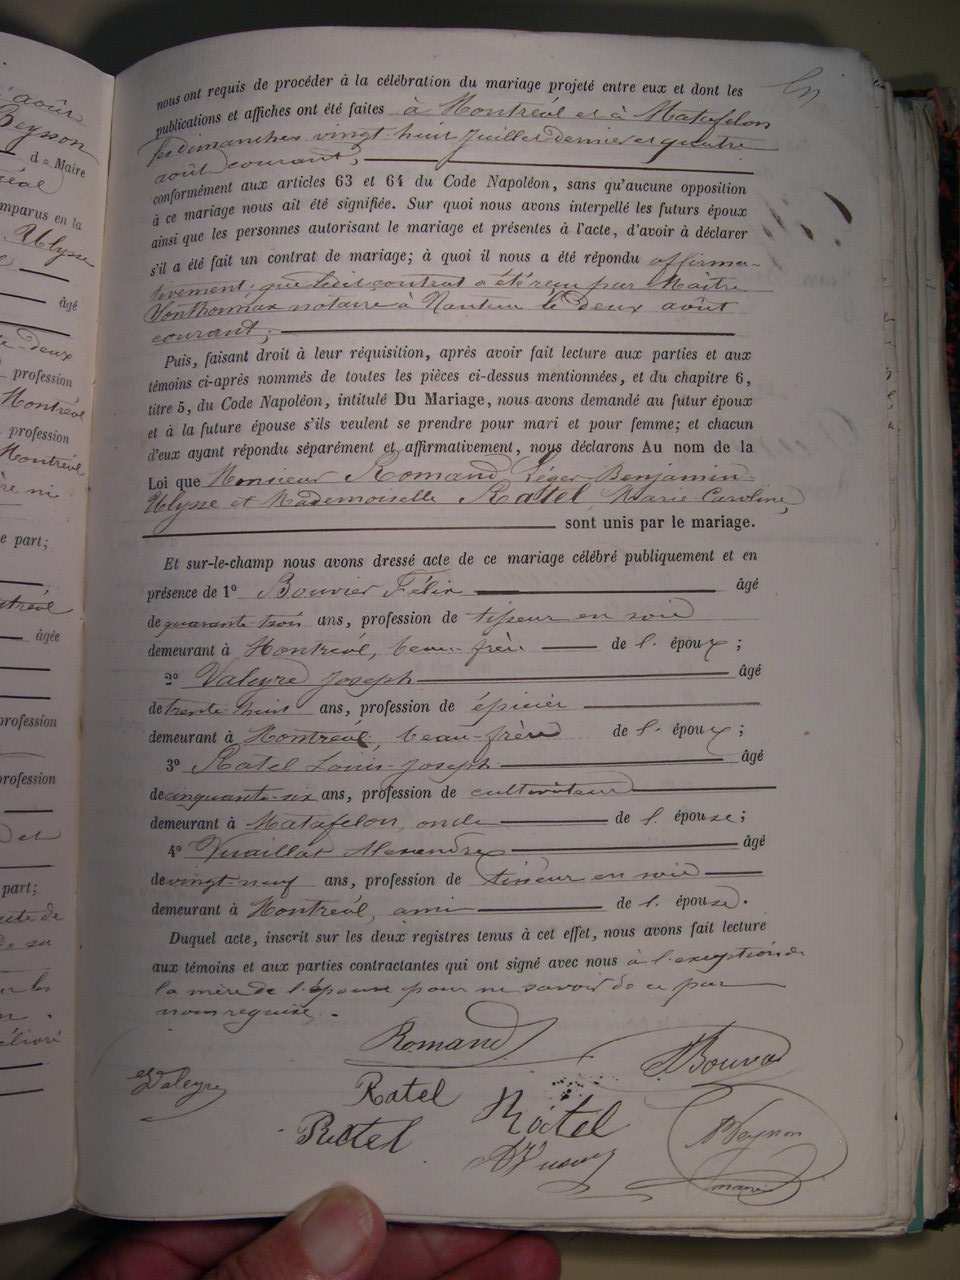 août
Peysson
d = Maire
réal
comparus en la
Ulysse
âgé
deux
profession
Montréal
profession
Montréal
ni
e part;
âgée
profession
profession
et
part;
de
de sa
les
nous ont requis de procéder à la célébration du mariage projeté entre eux et dont les
publications et affiches ont été faites à Montréal et à Matafelon
les dimanches vingt-huit Juillet dernier et quatre
août courant;
conformément aux articles 63 et 64 du Code Napoléon, sans qu'aucune opposition
à ce mariage nous ait été signifiée. Sur quoi nous avons interpellé les futurs époux
ainsi que les personnes autorisant le mariage et présentes à l'acte, d'avoir à déclarer
s'il a été fait un contrat de mariage; à quoi il nous a été répondu affirma-
tivement, que ledit contrat a été reçu par Maître
Vonthonnax notaire à Nantua le Deux août
courant;
Puis, faisant droit à leur réquisition, après avoir fait lecture aux parties et aux
témoins ci-après nommés de toutes les pièces ci-dessus mentionnées, et du chapitre 6,
titre 5, du Code Napoléon, intitulé Du Mariage, nous avons demandé au futur époux
et à la future épouse s'ils veulent se prendre pour mari et pour femme; et chacun
d'eux ayant répondu séparément et affirmativement, nous déclarons Au nom de la
Loi que Monsieur Romand Léger Benjamin
Ulysse et Mademoiselle Ratel, Marie Caroline,
sont unis par le mariage.
Et sur-le-champ nous avons dressé acte de ce mariage célébré publiquement et en
présence de 1° Bouvier Félix âgé
de quarante trois ans, profession de tisseur en soie
demeurant à Montréal, beau-frère de l. époux;
2° Valeyre Joseph âgé
de trente-huit ans, profession de épicier
demeurant à Montréal, beau-frère de l. époux;
3° Ratel Louis-Joseph âgé
de cinquante-six ans, profession de cultivateur
demeurant à Matafelon, oncle de l. épouse;
4° Vuaillat Alexandre âgé
de vingt-neuf ans, profession de tisseur en soie
demeurant à Montréal, ami de l. épouse.
Duquel acte, inscrit sur les deux registres tenus à cet effet, nous avons fait lecture
aux témoins et aux parties contractantes qui ont signé avec nous à l'exception de
la mère de l'épouse pour ne savoir de ce par
nous requise.
Romand
Valeyre
Ratel
Ratel
Ratel
maire